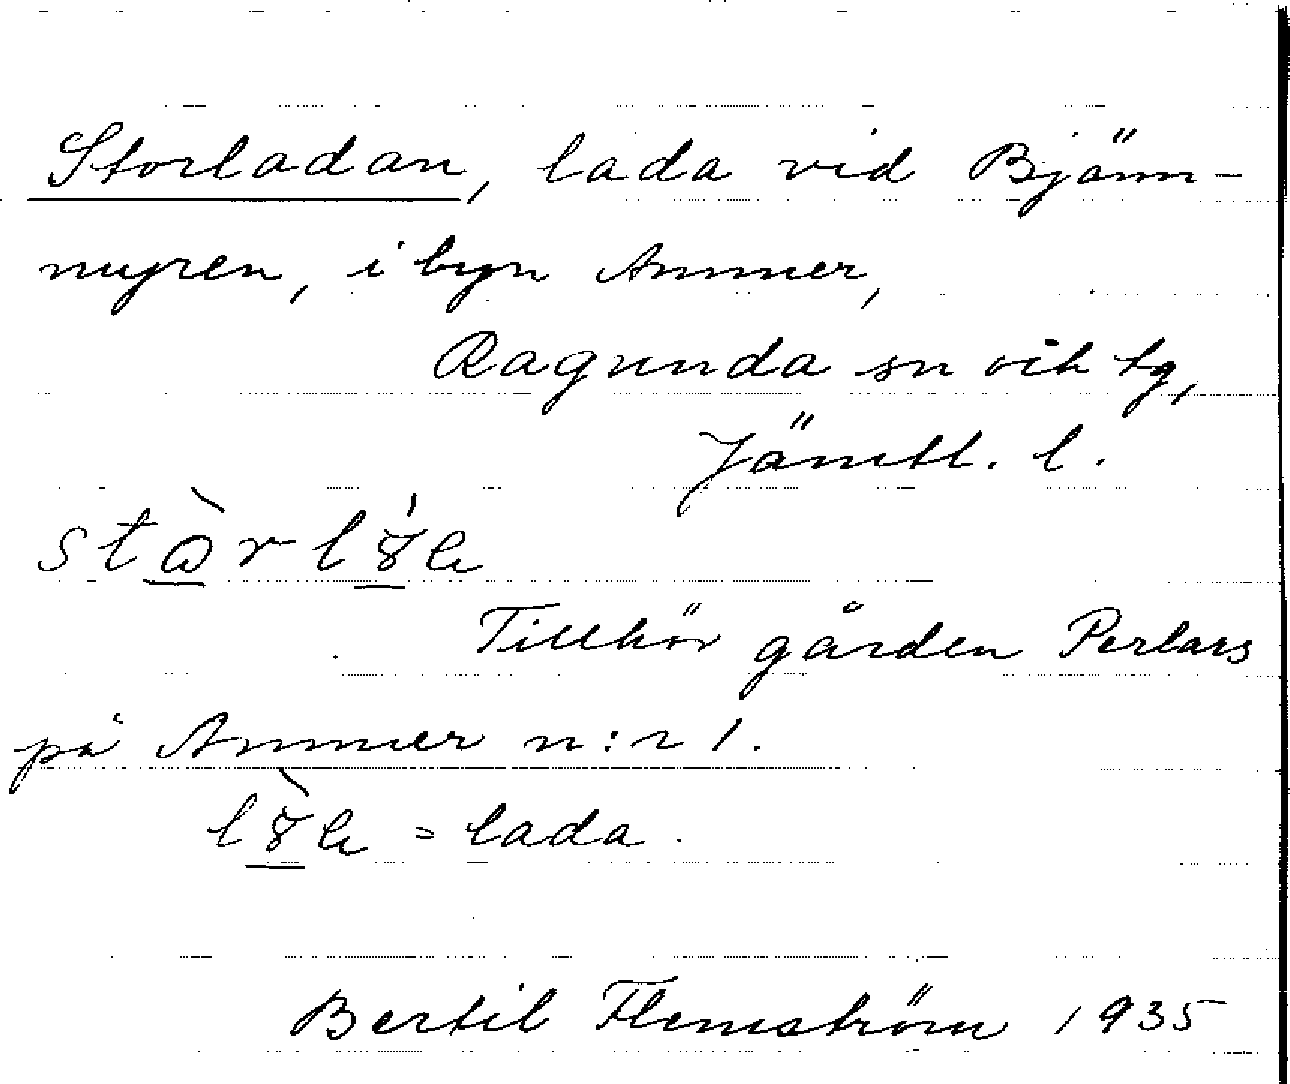 Storladan, lada vid Björn-
myren, i byn Ammer,
Ragunda sn och tg,
Jämtl. l.
Tillhör gården Perlars
på Ammer n:r 1.
= lada.
Bertil Flemström 1935